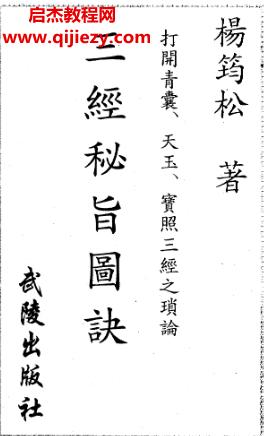 启杰教程网
www.qijiezy.com
楊筠松 著
打開青囊、天玉、寶照三經之瑣論
三經秘旨圖訣
武陵出版社